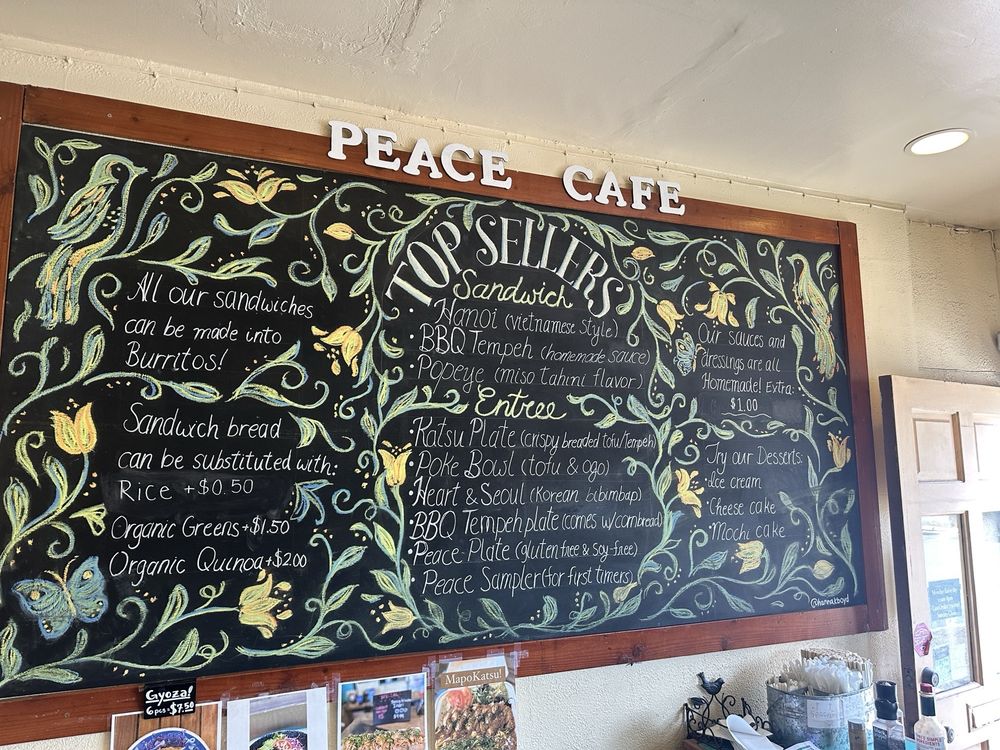 PEACE CAFE
All our sandwiches
can be made into
Burritos!
Sandwich bread
can be substituted with:
Rice +$0.50
Organic Greens +$1.50
Organic Quinoa +$2.00
TOP SELLERS
Sandwich
• Hanoi (vietnamese style)
• BBQ Tempeh (homemade sauce)
• Popeye (miso tahini flavor)
Entree
• Katsu Plate (crispy breaded tofu/tempeh)
• Poke Bowl (tofu & ogo)
• Heart & Seoul (Korean bibimbap)
• BBQ Tempeh plate (comes w/cornbread)
• Peace Plate (gluten free & soy-free)
• Peace Sampler (for first timers)
Our sauces and
dressings are all
Homemade! Extra:
$1.00
Try our Desserts:
• Ice cream
• Cheese cake
• Mochi cake
@hannakboyd
Gyoza!
6pcs - $7.50
MapoKatsu!